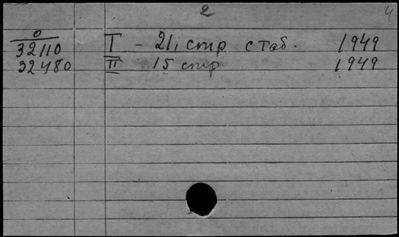 2 4
0
32110 I - 21, стр с таб. 1949
32480 II 15 стр 1949